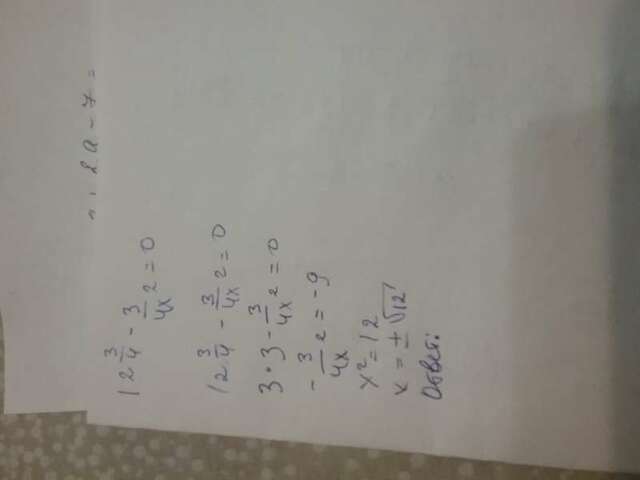 2a - 7 =
12 3/4 - 3/4x² = 0
12 3/4 - 3/4x² = 0
3 · 3 - 3/4x² = 0
- 3/4x² = -9
x² = 12
x = ± √12
Ответ: